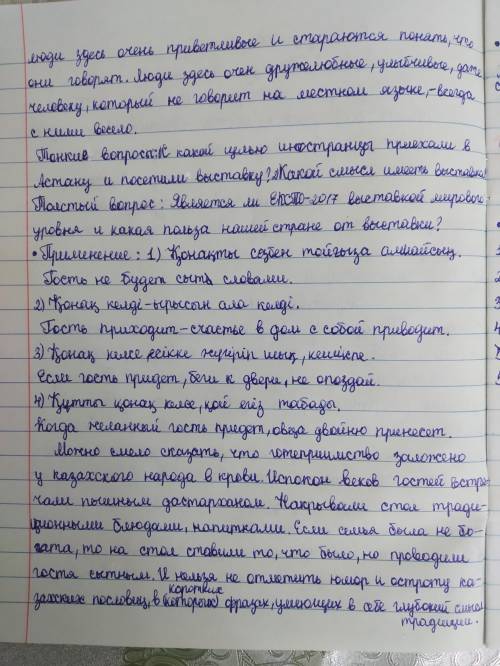 люди здесь очень приветливые и стараются понять, что
они говорят. Люди здесь очен дружелюбные, улыбчивые, даже
человеку, который не говорит на местном языке, - всегда
с ними весело.
Тонкие вопросы: К какой целью иностранцы приехали в
Астану и посетили выставку? Какой смысл иметь выставка?
Толстый вопрос: Является ли ЕКСПО-2017 выставкой мирового
уровня и какая польза нашей стране от выставки?
• Применение: 1) Қонақты сөзбен тойғыза алмайсың.
Гость не будет сыть словами.
2) Қонақ келді - ырысын ала келді.
Гость приходит - счастье в дом с собой приводит.
3) Қонақ келсе есікке жүгіріп шық, кешікпе.
Если гость придет, беги к двери, не опоздай.
4) Құтты қонақ келсе, қой егіз табады.
Когда желанный гость придет, овца двойню принесет.
Можно смело сказать, что готеприимство заложено
у казахского народа в крови. Испокон веков гостей встре-
чали пышным дастарханом. Накрывали стол тради-
ционными блюдами, напитками. Если семья была не бо-
гата, то на стол ставили то, что было, но проводили
гостя сытным. И нельзя не отметить юмор и остроту ка-
захских пословиц, в которых коротких фразах, умеющих в себе глубокий смысл
традиции.